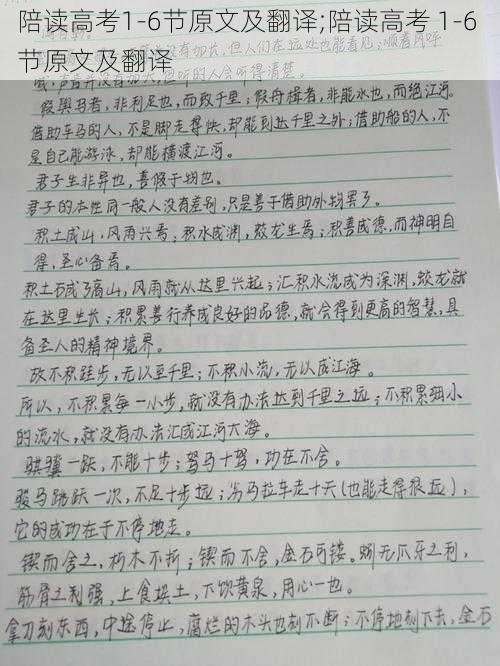 陪读高考1-6节原文及翻译;陪读高考 1-6
节原文及翻译
没有加长，但人们在远处也能看见；顺着风呼
喊，声音并没有加大，但听的人会听得清楚。
假舆马者，非利足也，而致千里；假舟楫者，非能水也，而绝江河。
借助车马的人，不是脚走得快，却能到达千里之外；借助船的人，不
是自己能游泳，却能横渡江河。
君子生非异也，善假于物也。
君子的本性同一般人没有差别，只是善于借助外物罢了。
积土成山，风雨兴焉；积水成渊，蛟龙生焉；积善成德，而神明自
得，圣心备焉。
积土石成了高山，风雨就从这里兴起；汇积水流成为深渊，蛟龙就
在这里生长；积累善行养成良好的品德，就会得到更高的智慧，具
备圣人的精神境界。
故不积跬步，无以至千里；不积小流，无以成江海。
所以，不积累每一小步，就没有办法达到千里之远；不积累细小
的流水，就没有办法汇成江河大海。
骐骥一跃，不能十步；驽马十驾，功在不舍。
骏马跳跃一次，不足十步远；劣马拉车走十天(也能走得很远)，
它的成功在于不停地走。
锲而舍之，朽木不折；锲而不舍，金石可镂。蚓无爪牙之利，
筋骨之利强，上食埃土，下饮黄泉，用心一也。
拿刀刻东西，中途停止，腐烂的木头也刻不断；不停地刻下去，金石